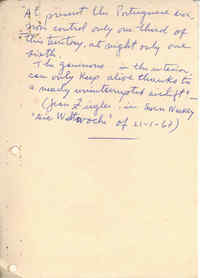 "At present the Portuguese
control only one third of
this territory, at night only one
sixth.
The garrisons in the interior
can only keep alive thanks to
a nearly uninterrupted airlift"
(Jean Ziegler in Swiss Weekly
"Die Weltwoche" of 21-1-67)